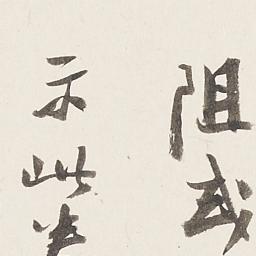 阻或
示此